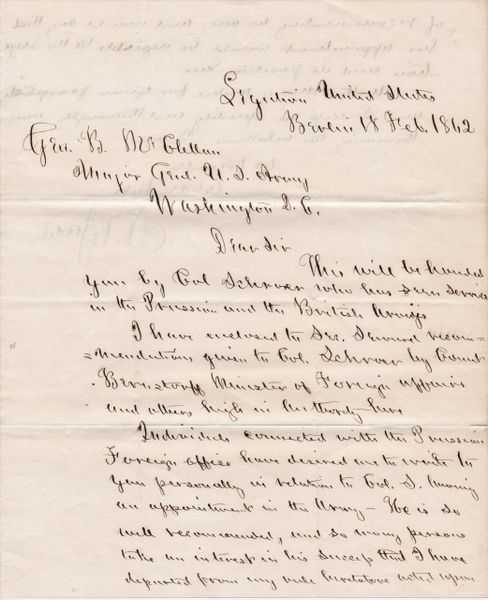 Legation United States
Berlin 18 Feb. 1862
Geo. B. McClellan
Major Genl. U. S. Army
Washington D. C.
Dear Sir
This will be handed
you by Col Schroer who has seen service
in the Prussian and the British Armys
I have enclosed to Sec. Seward recom-
=mendations given to Col. Schroer by Count
Bernstorff Minister of Foreign affairs
and others high in Authority here
Individuals connected with the Prussian
Foreign office have desired me to write to
you personally in relation to Col. S. having
an appointment in the Army - He is so
well recommended, and so many persons
take an interest in his success that I have
departed from my rule heretofore acted upon